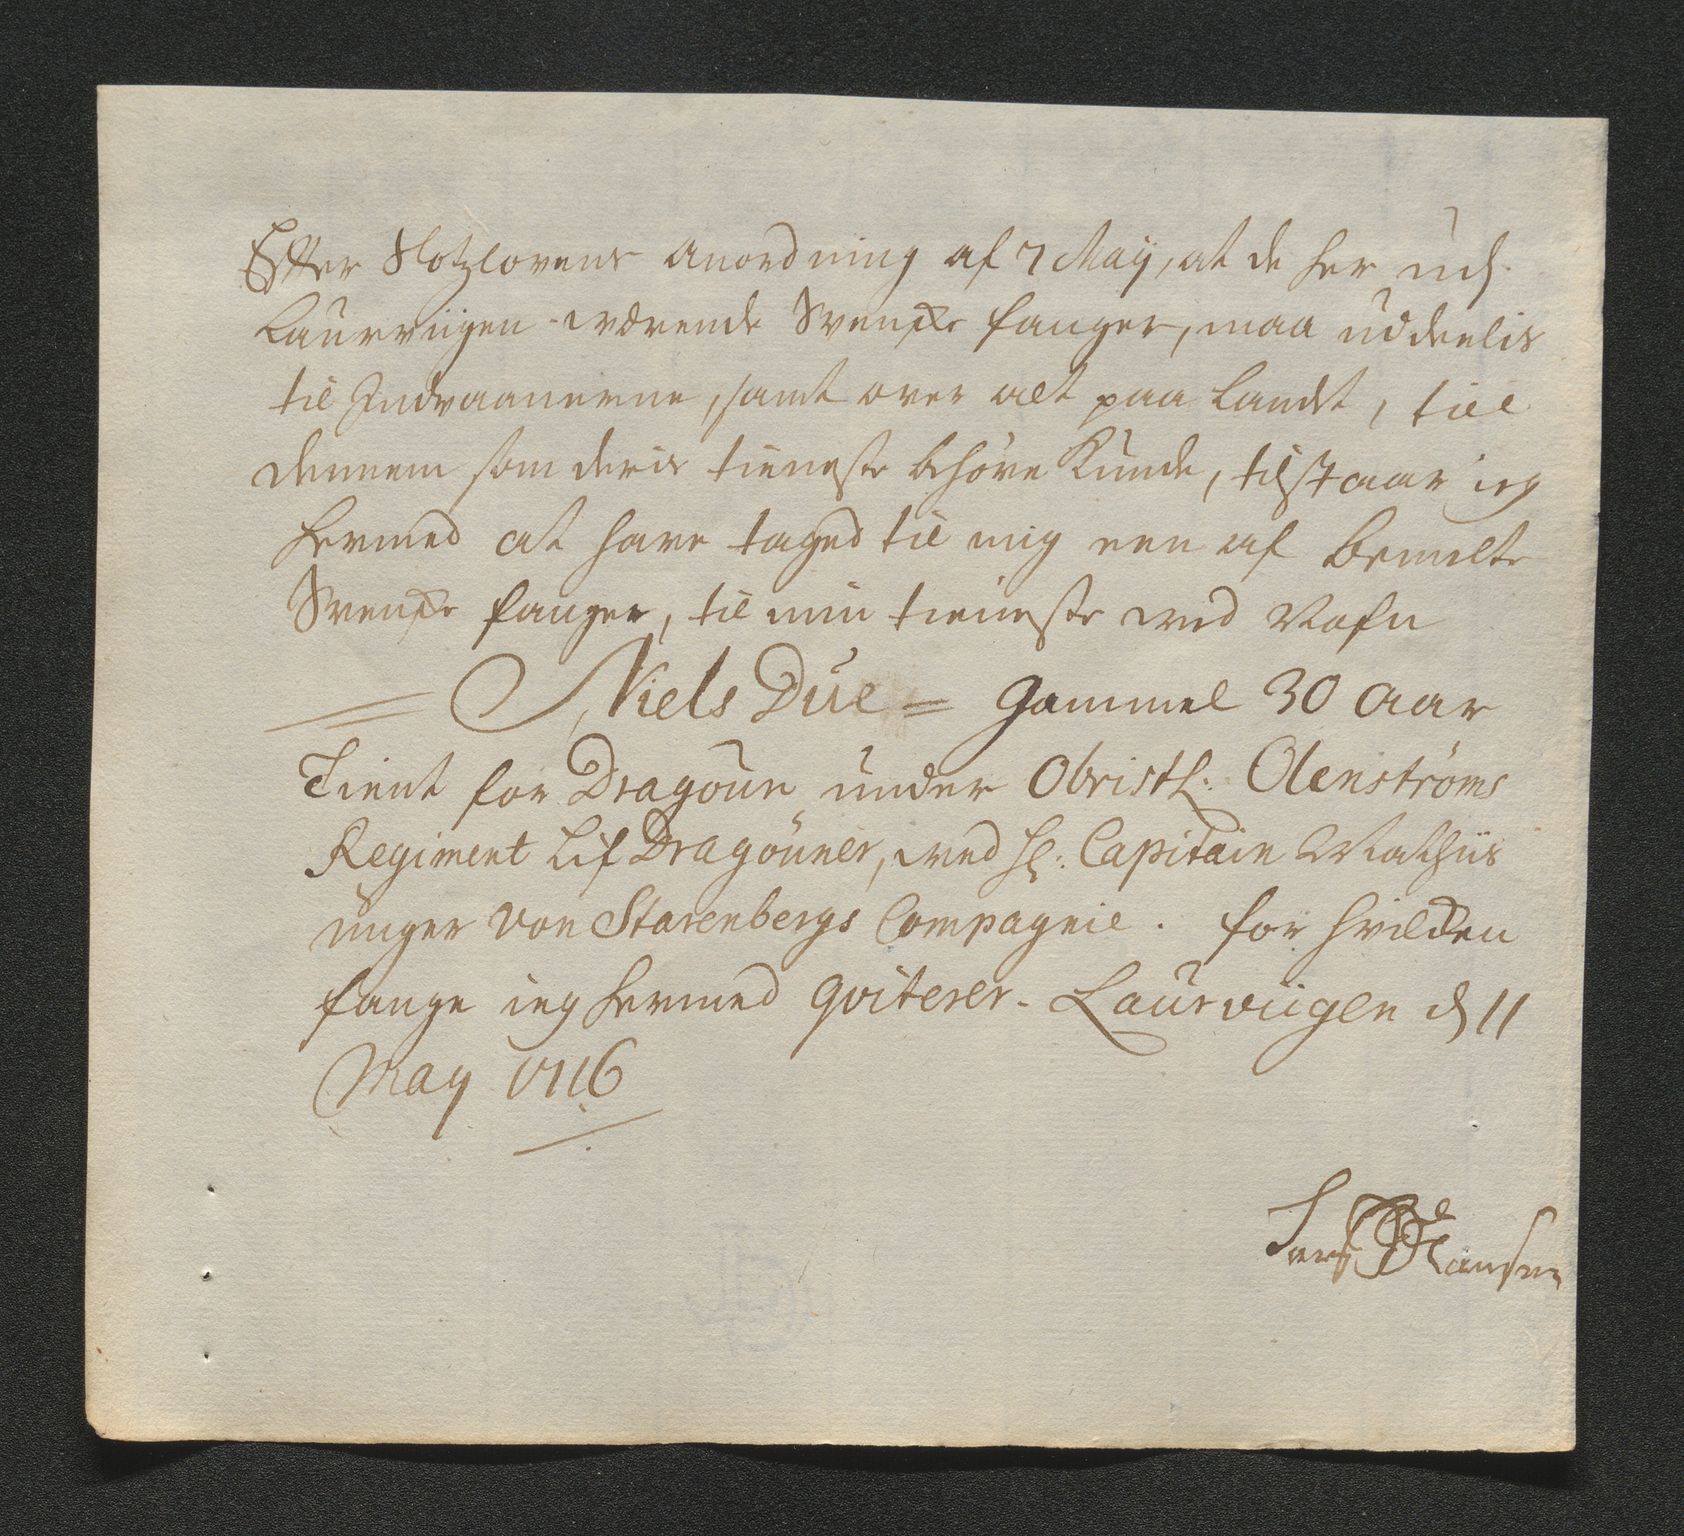 Effter Slotzlovens anordning af 7 May, at de her udj
Laurviigen værende Svenske fanger, maa uddeelis
til Indvaanerne, samt over alt paa Landet, till
dennem som deris tieneste behöve Kunde, tilstaar ieg
hermed at have taged til mig een af bemelte
Svenske fanger, til min tieneste ved Nafn
Niels Due = gammel 30 aar
Tient for Dragoun under Obristl: Olenströms
Regiment Lif Dragouner, ved Hr: Capitain Mathiis
unger von Starenbergs Compagnie. for hvilcken
fange ieg hermed qviterer. Laurviigen d 11
May 1716
Hansen